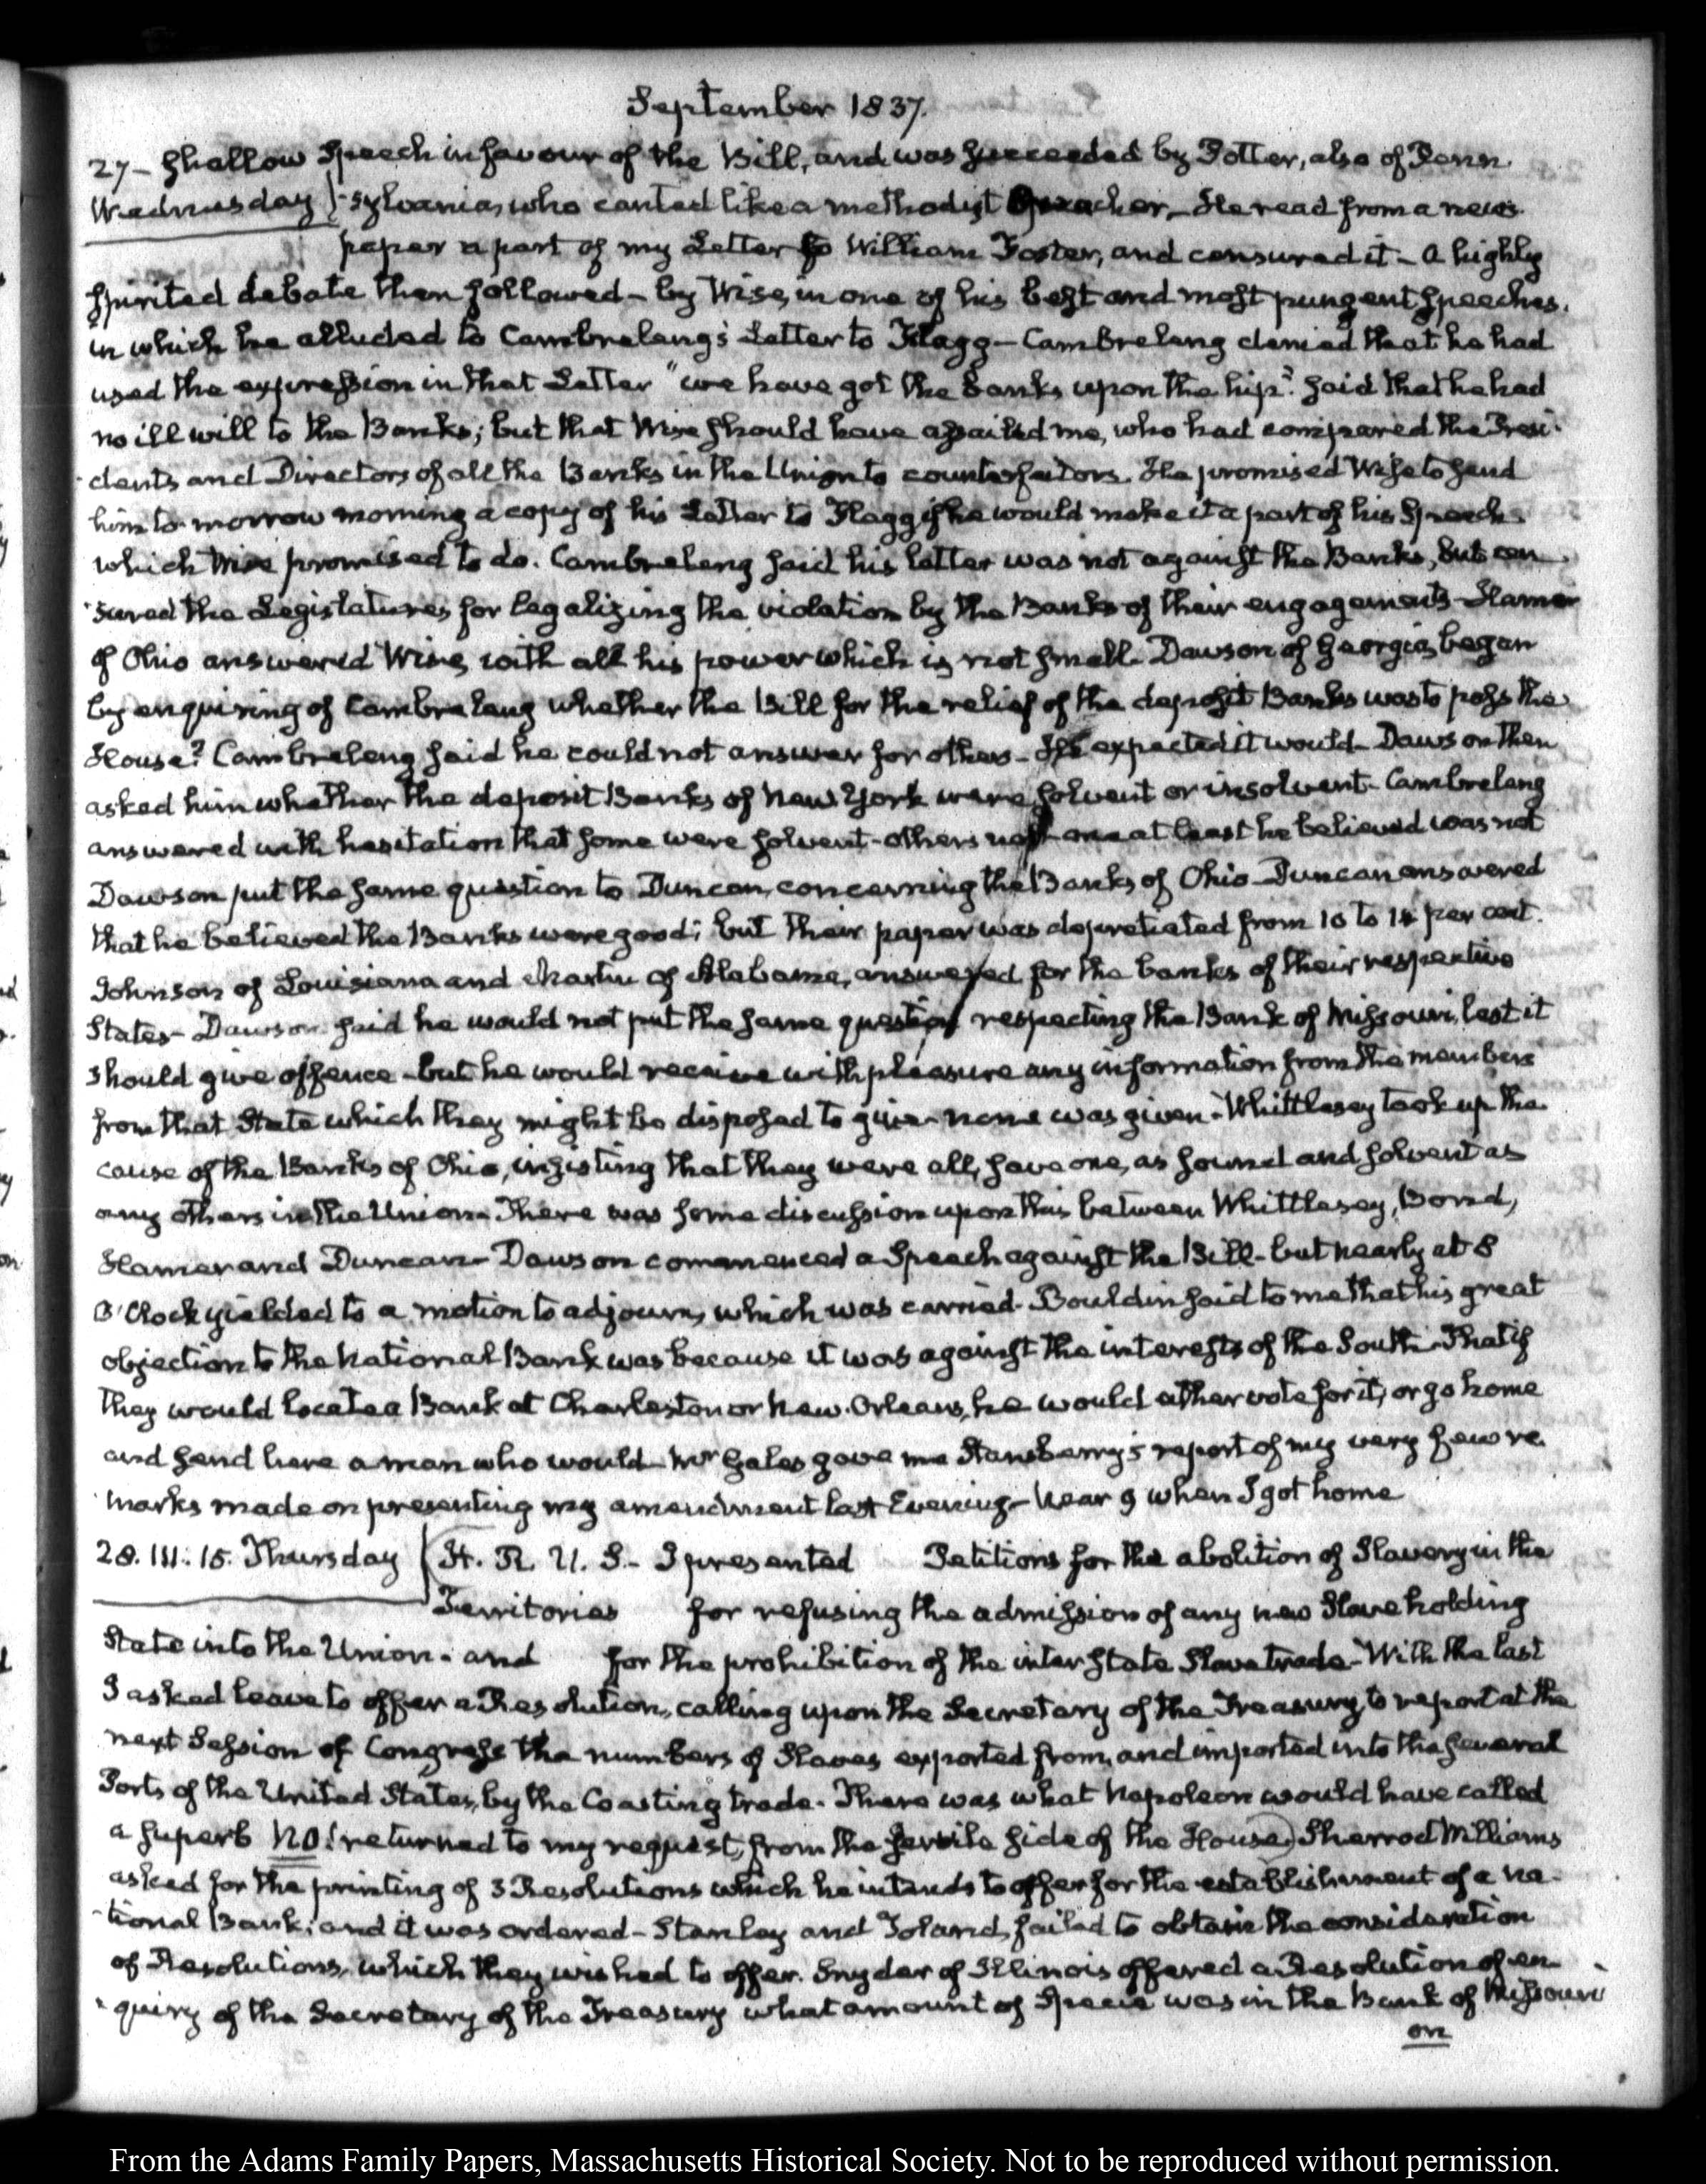 September 1837.
27 - shallow Speech in favour of the Bill, and was succeeded by Potter, also of Penn
Wednesday } -sylvania, who canted like a methodist preacher - He read from a news-
paper a part of my Letter to William Foster, and censured it - A highly
spirited debate then followed - by Wise, in one of his best and most pungent speeches.
in which he alluded to Cambreleng's Letter to Flagg - Cambreleng denied that he had
used the expression in that Letter "we have got the banks upon the hip". said that he had
no ill will to the Banks; but that Wise should have assailed me, who had compared the Presi-
-dents and Directors of all the Banks in the Union to counterfeitors. He promised Wise to send
him to-morrow morning a copy of his Letter to Flagg if he would make it a part of his Speech
which Wise promised to do. Cambreleng said his letter was not against the Banks, but cen-
-sured the Legislatures for legalizing the violation by the Banks of their engagements - Hamer
of Ohio answered Wise, with all his power which is not small - Dawson of Georgia, began
by enquiring of Cambreleng whether the Bill for the relief of the deposit Banks was to pass the
House? Cambreleng said he could not answer for others - He expected it would - Dawson then
asked him whether the deposit Banks of New York were solvent or insolvent - Cambreleng
answered with hesitation that some were solvent - others not - one at least he believed was not
Dawson put the same question to Duncan, concerning the Banks of Ohio - Duncan answered
that he believed the Banks were good; but their paper was depretiated from 10 to 14 per cent.
Johnson of Louisiana and Martin of Alabama, answered for the banks of their respective
States - Dawson said he would not put the same question respecting the Bank of Missouri, lest it
should give offence - but he would receive with pleasure any information from the members
from that State which they might be disposed to give - none was given - Whittlesey took up the
cause of the Banks of Ohio, insisting that they were all, save one, as sound and solvent as
any others in the Union - There was some discussion upon this between Whittlesey, Bond,
Hamer and Duncan - Dawson commenced a Speech against the Bill - but nearly at 8
O'Clock yielded to a motion to adjourn, which was carried - Bouldin said to me that his great
objection to the National Bank was because it was against the interests of the South - That if
they would locate a Bank at Charleston or New-Orleans, he would either vote for it, or go home
and send here a man who would - Mr Gales gave me Stansberry's report of my very few re-
-marks made on presenting my amendment last Evening - Near 9 when I got home
28. III:15. Thursday { H. R. U. S. - I presented Petitions for the abolition of Slavery in the
Territories for refusing the admission of any new Slave holding
State into the Union - and for the prohibition of the inter State Slave trade - With the last
I asked leave to offer a Resolution, calling upon the Secretary of the Treasury to report at the
next Session of Congress the numbers of Slaves exported from, and imported into the several
Ports of the United States, by the Coasting trade - There was what Napoleon would have called
a superb NO! returned to my request, from the servile side of the House) Sherrod Williams
asked for the printing of 3 Resolutions which he intends to offer for the establishment of a na-
-tional Bank; and it was ordered - Stanley and Toland, failed to obtain the consideration
of Resolutions, which they wished to offer. Snyder of Illinois offered a Resolution of en-
-quiry of the Secretary of the Treasury what amount of Specie was in the Bank of Missouri
on
From the Adams Family Papers, Massachusetts Historical Society. Not to be reproduced without permission.